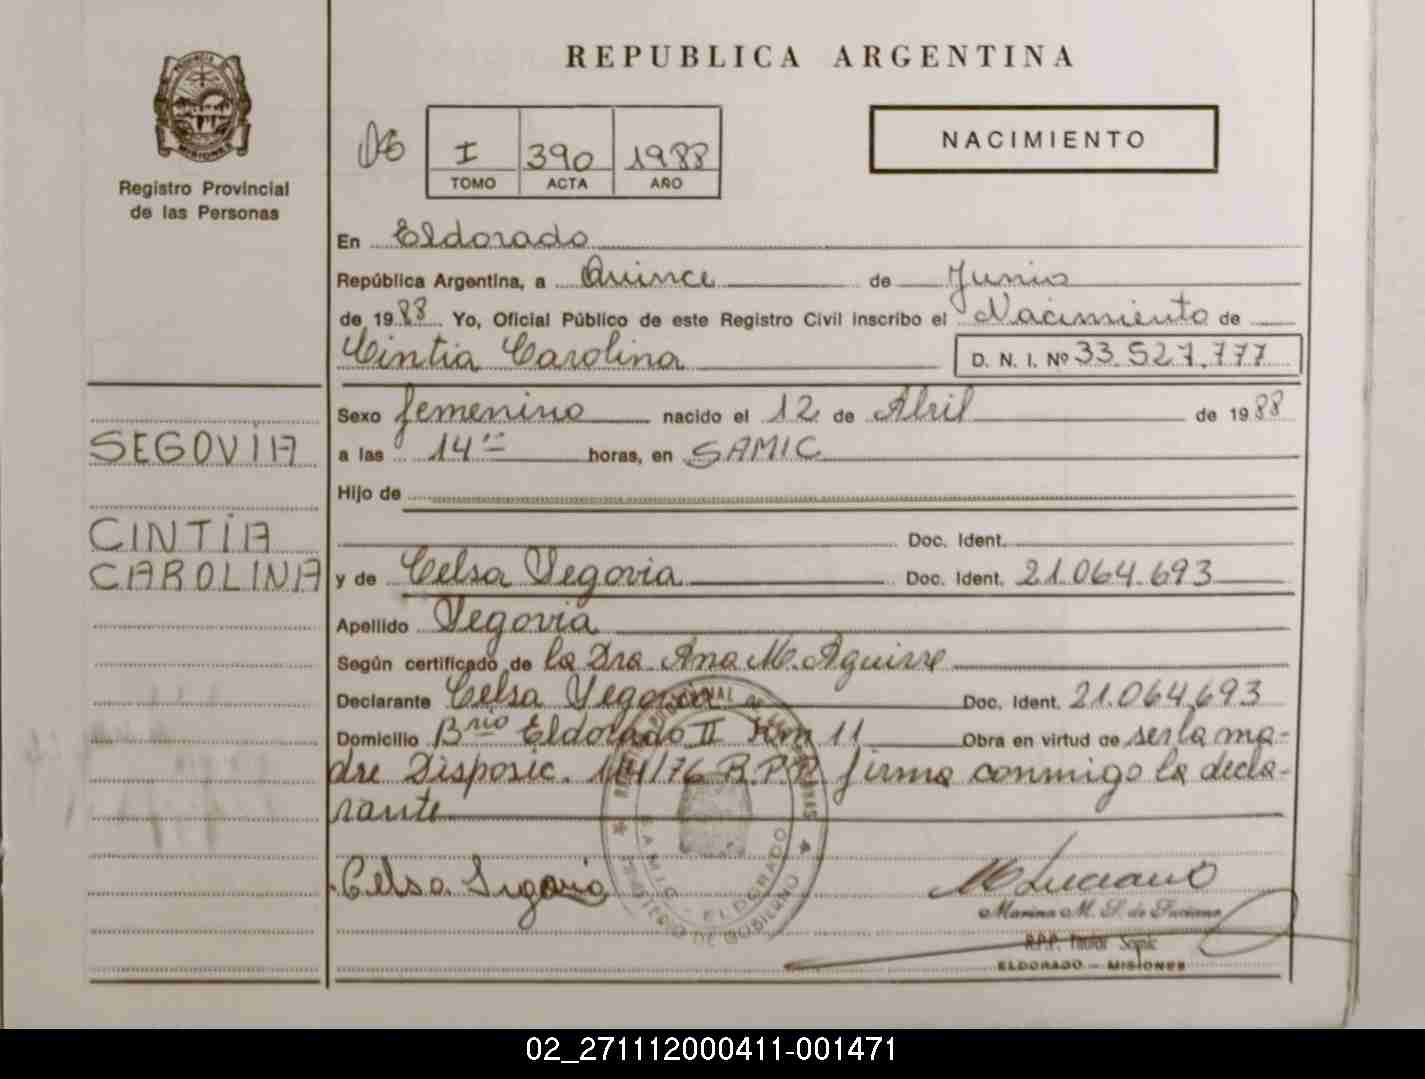 REPUBLICA ARGENTINA
MISIONES
Registro Provincial
de las Personas
I 390 1988
TOMO ACTA AÑO
NACIMIENTO
En Eldorado
República Argentina, a Quince de Junio
de 1988 Yo, Oficial Público de este Registro Civil inscribo el Nacimiento de
Cintia Carolina D. N. I. Nº 33.527.777
Sexo femenino nacido el 12 de Abril de 1988
SEGOVIA
a las 14 horas, en SAMIC
Hijo de
CINTIA
Doc. Ident.
CAROLINA
y de Celsa Segovia Doc. Ident. 21.064.693
Apellido Segovia
Según certificado de la Dra Ana M. Aguirre
Declarante Celsa Segovia Doc. Ident. 21.064.693
Domicilio Brio Eldorado II Km 11 Obra en virtud de ser la ma-
dre Disposic. 1/4/76 R.P.P. firma conmigo la decla-
rante
Celsa Segovia
M Luciano
Marina M. S. de Luciano
R.P.P. Titular Samic
ELDORADO - MISIONES
SAMIC - ELDORADO
MINISTERIO DE GOBIERNO
02_271112000411-001471